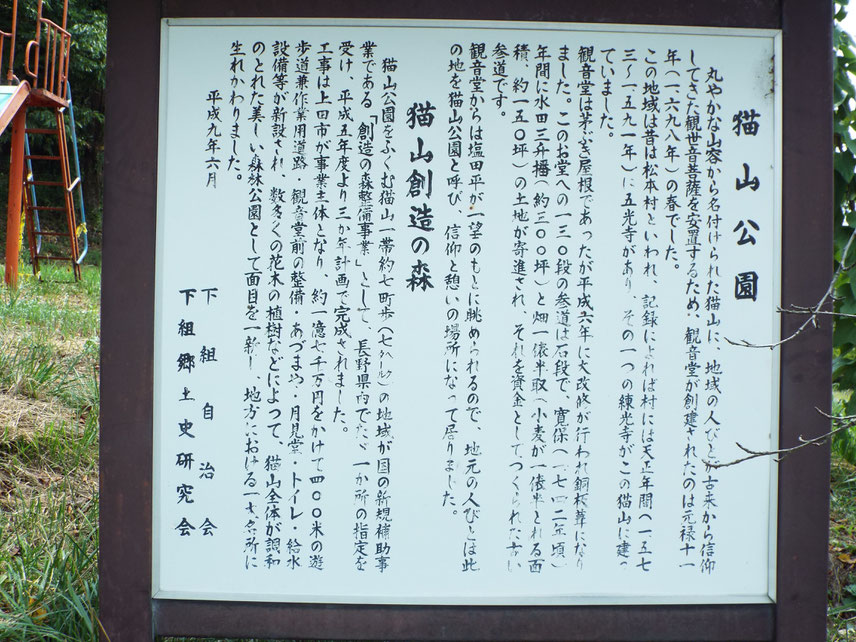 猫山公園
丸やかな山容から名付けられた猫山に、地域の人びとが古来から信仰
してきた観世音菩薩を安置するため、観音堂が創建されたのは元禄十一
年(一六九八年)の春でした。
この地域は昔は松本村といわれ、記録によれば村には天正年間(一五七
三〜一五九一年)に五光寺があり、その一つの練光寺がこの猫山に建っ
ていました。
観音堂は茅ぶき屋根であったが平成六年に大改修が行われ銅板葺になり
ました。このお堂への一三〇段の参道は石段で、寛保(一七四二年頃)
年間に水田三升播(約三〇〇坪)と畑一俵半取(小麦が一俵半とれる面
積、約一五〇坪)の土地が寄進され、それを資金としてつくられた古い
参道です。
観音堂からは塩田平が一望のもとに眺められるので、地元の人びとは此
の地を猫山公園と呼び、信仰と憩いの場所になって居りました。
猫山創造の森
猫山公園をふくむ猫山一帯約七町歩(七ヘクタール)の地域が国の新規補助事
業である「創造の森整備事業」として、長野県内でたゞ一か所の指定を
受け、平成五年度より三か年計画で完成されました。
工事は上田市が事業主体となり、約一億七千万円をかけて四〇〇米の遊
歩道兼作業用道路・観音堂前の整備・あづまや・月見堂・トイレ・給水
設備等が新設され、数多くの花木の植樹などによって、猫山全体が調和
のとれた美しい森林公園として面目を一新し、地方における一大名所に
生れかわりました。
平成九年六月
下組自治会
下組郷土史研究会